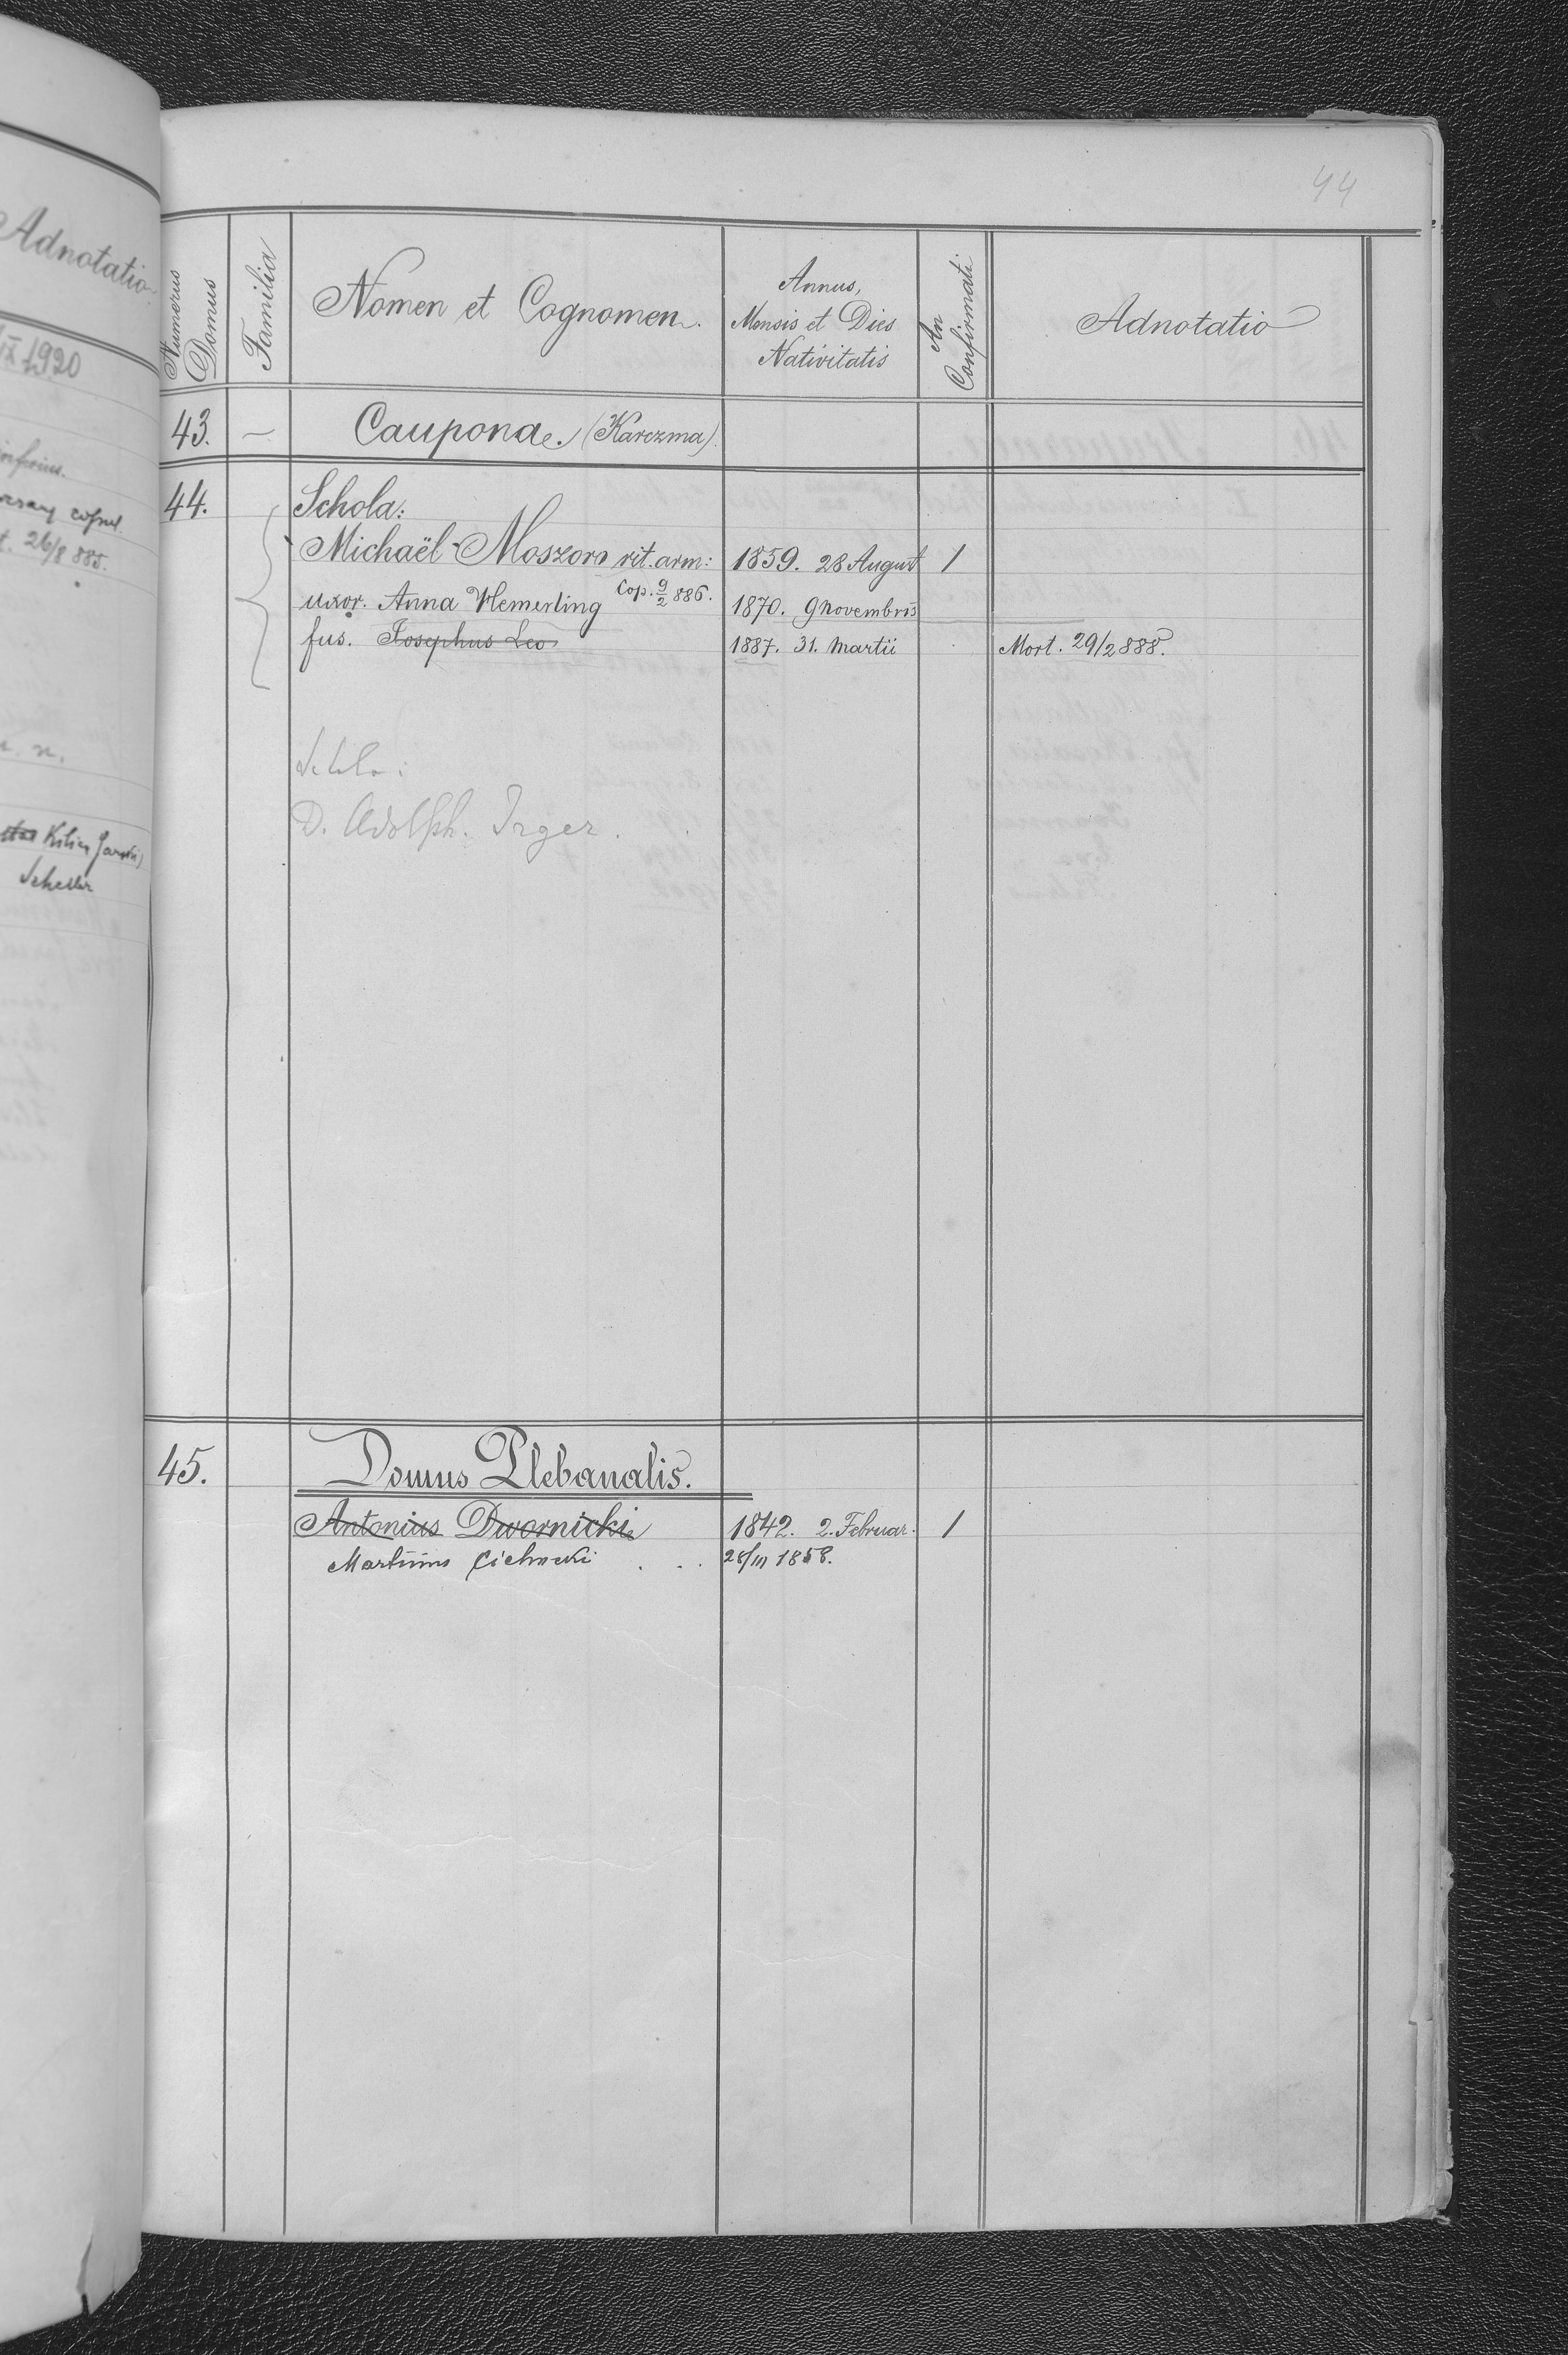 Adnotatio
IX 1920
inferius.
26/8 885.
Kilian
Scheller
44
Numerus Domus
Familia
Nomen et Cognomen.
Annus,
Mensis et Dies
Nativitatis
An Confirmati
Adnotatio
43. — Caupona. (Karczma).
44. Schola:
Michaël Moszoro rit. arm: 1859. 28 August 1
uxor. Anna Hemerling Cop. 9/2 886. 1870. 9 Novembris
fus. Josephus Leo 1887. 31. Martii Mort. 29/2 888.
Schola:
D. Adolph. Irger.
45. Domus Plebanalis.
Antonius Dwornicki 1842. 2. Februar. 1
Martinus Cichocki . . . 28/III 1858.